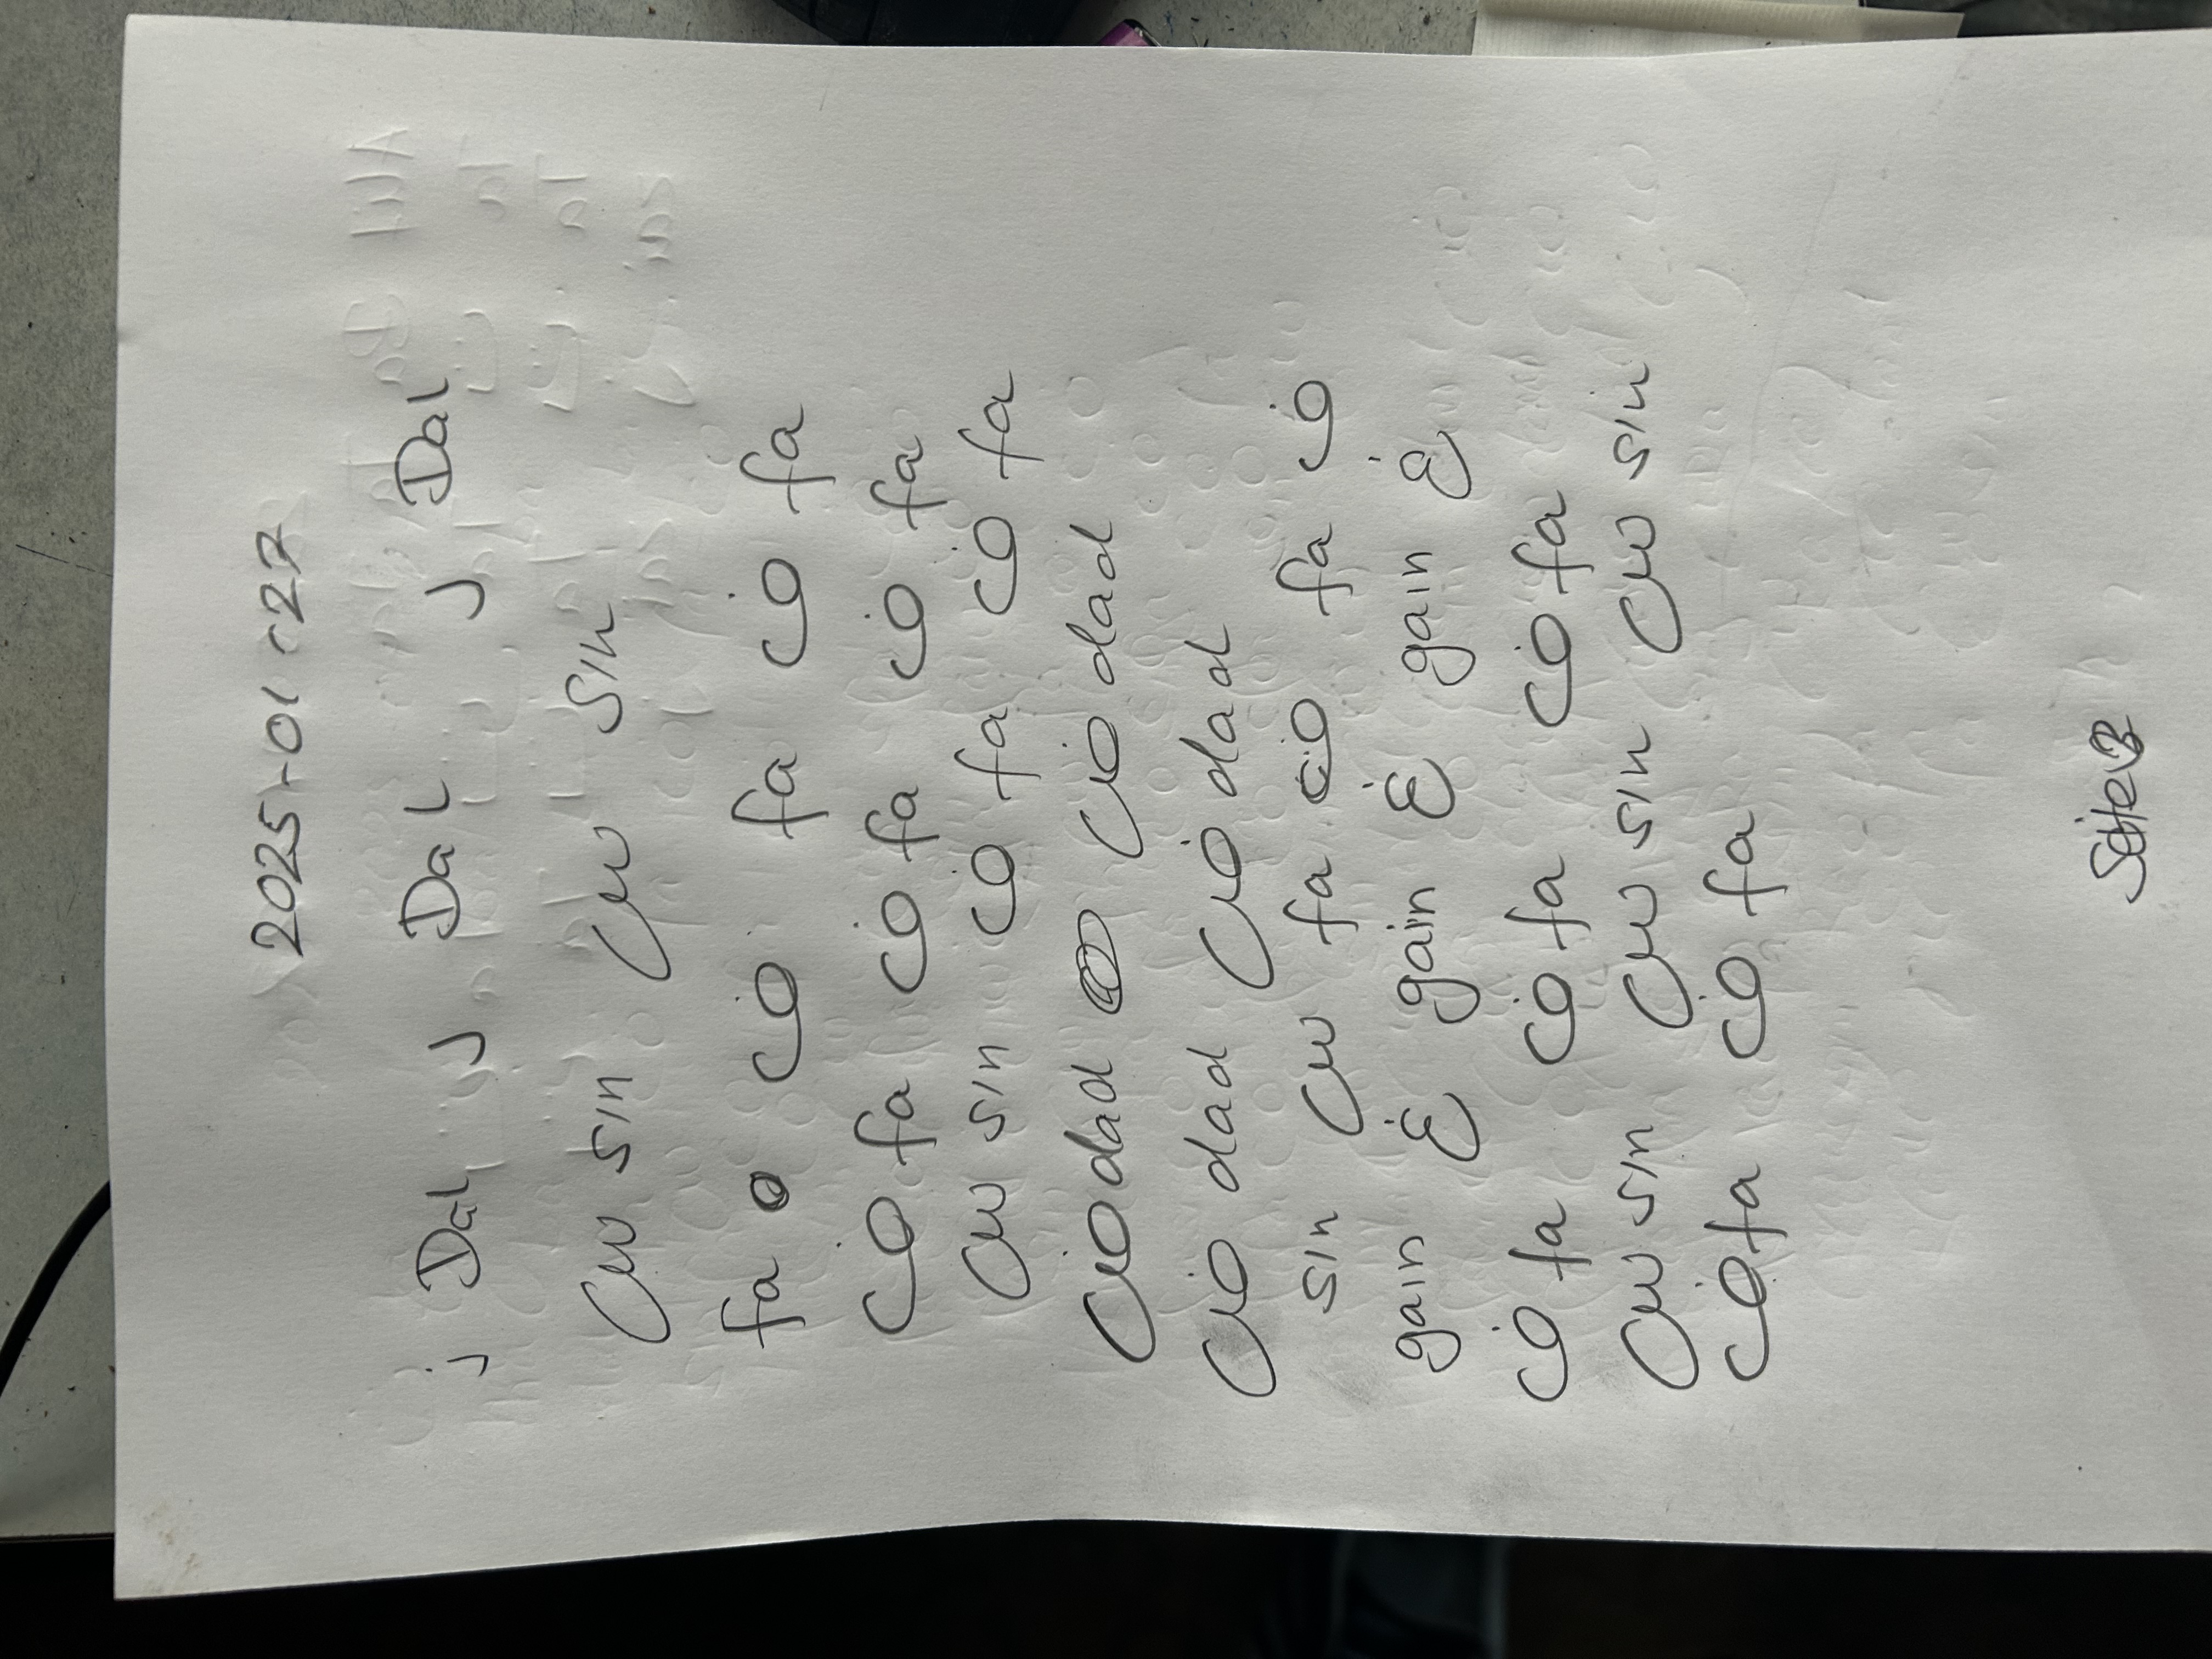 2025-01-27
j Dal j Dal j Dal
س sin س sin
fa ف fa ف fa
ف fa ف fa ف fa
س sin ف fa ف fa
ض dad ض dad
ض dad ض dad
sin س fa ف fa ف
gain غ gain غ gain غ
ف fa ف fa ف fa
س sin س sin س sin
ف fa ف fa
Seite 3